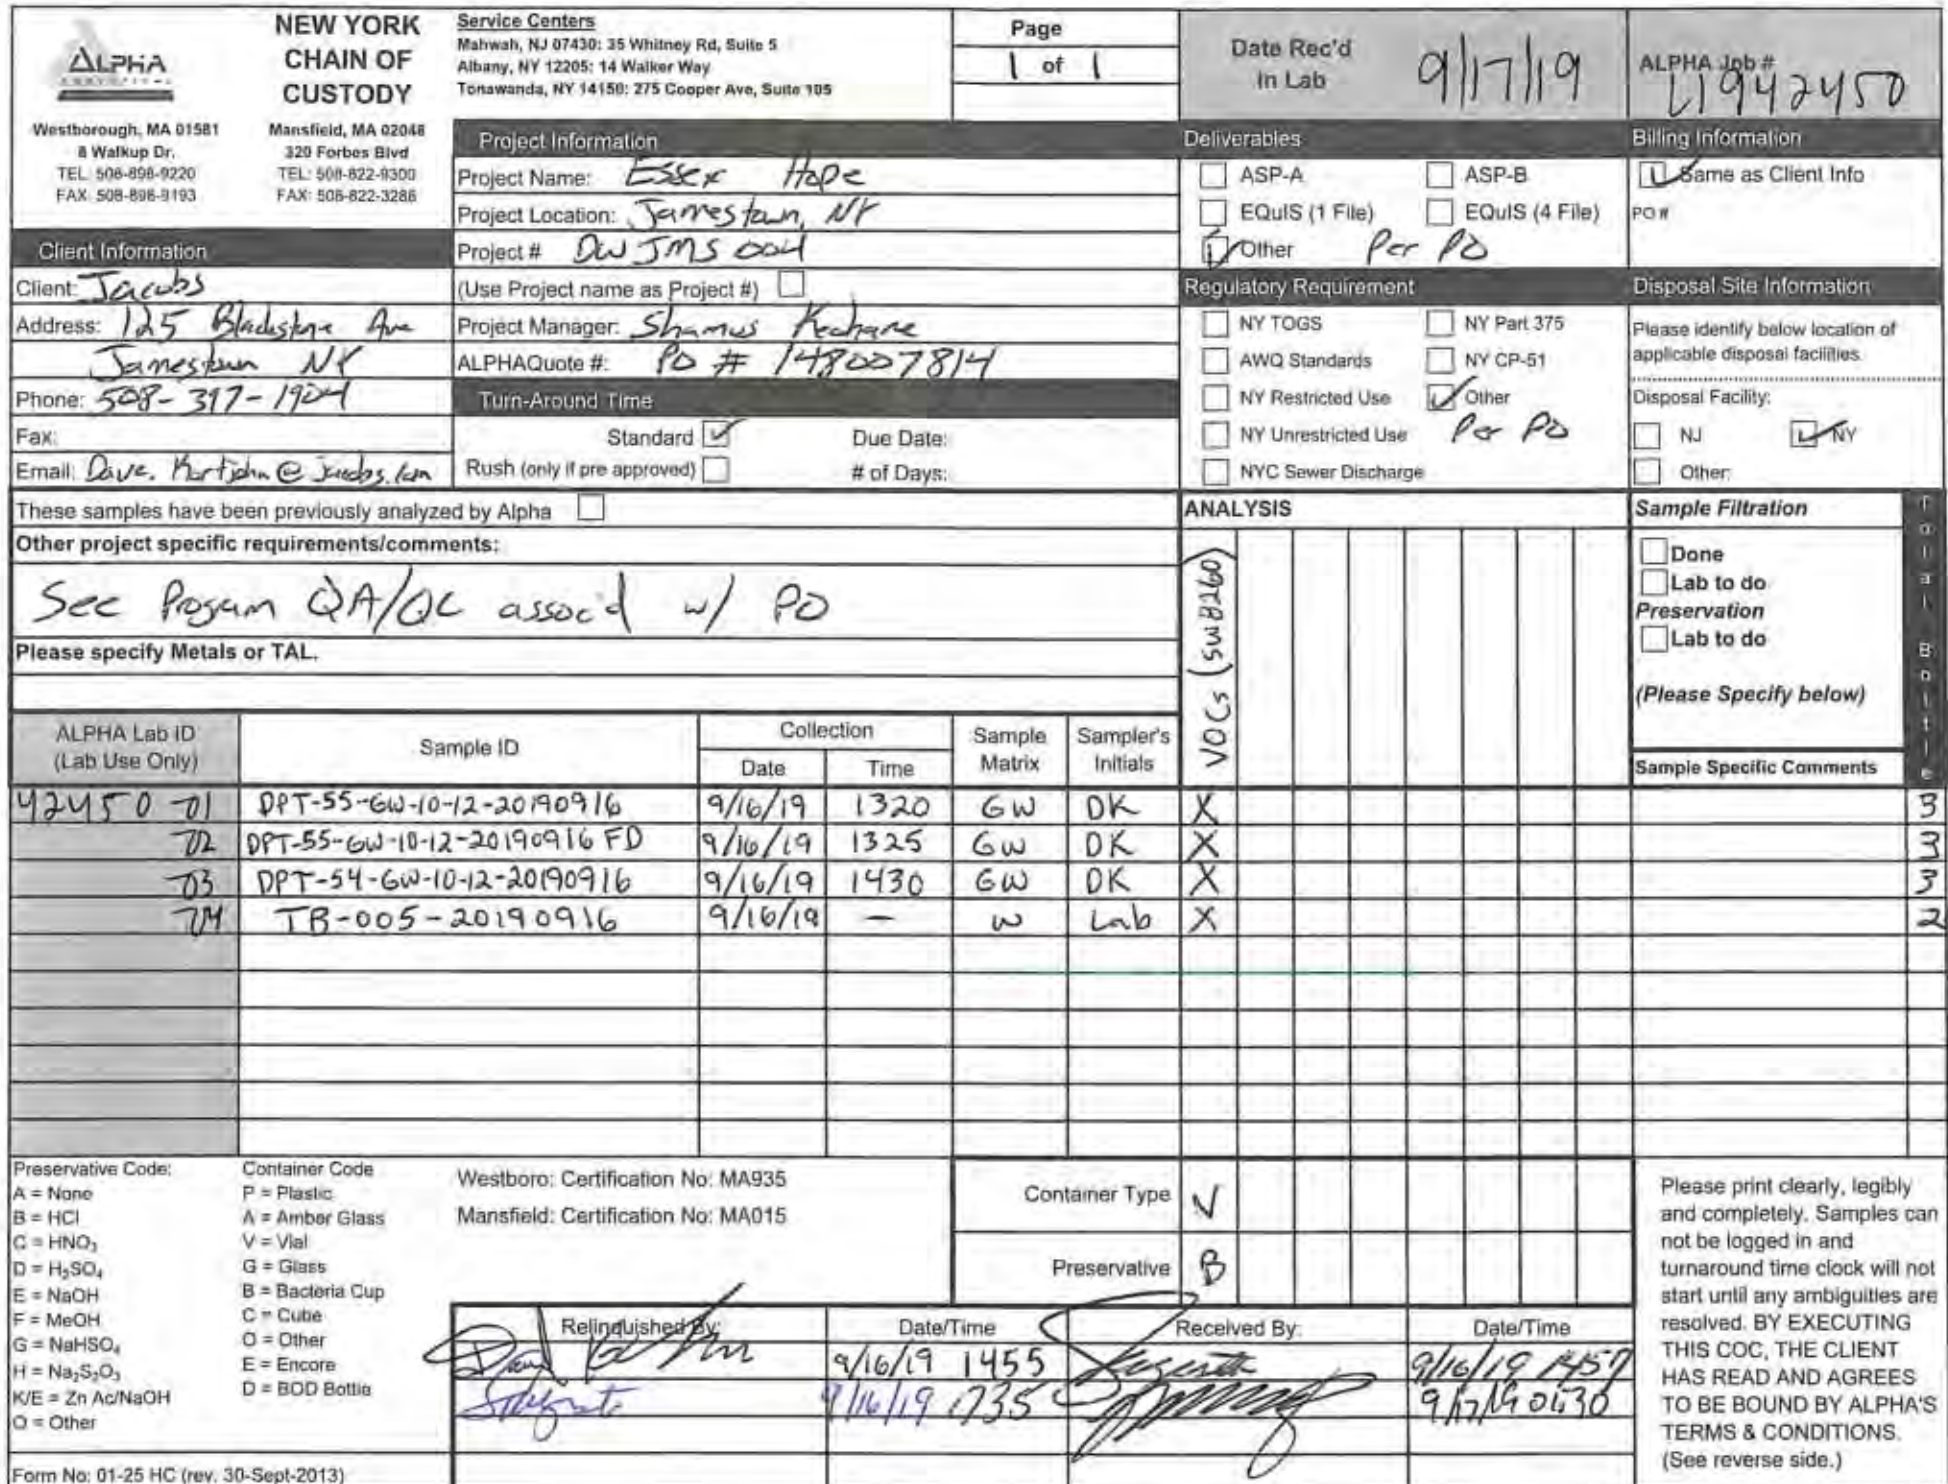 ALPHA
ANALYTICAL
NEW YORK
CHAIN OF
CUSTODY
Westborough, MA 01581
8 Walkup Dr.
TEL: 508-898-9220
FAX: 508-898-9193
Mansfield, MA 02048
320 Forbes Blvd
TEL: 508-822-9300
FAX: 508-822-3288
Service Centers
Mahwah, NJ 07430: 35 Whitney Rd, Suite 5
Albany, NY 12205: 14 Walker Way
Tonawanda, NY 14150: 275 Cooper Ave, Suite 105
Page
1 of 1
Date Rec'd
In Lab
9/17/19
ALPHA Job #
L1942450
Client Information
Client: Jacobs
Address: 125 Blackstone Ave
Jamestown NY
Phone: 508-317-1904
Fax:
Email: Dave.Kortjohn@jacobs.com
Project Information
Project Name: Essex Hope
Project Location: Jamestown, NY
Project # DWJMS004
(Use Project name as Project #)
Project Manager: Shamus
ALPHAQuote #: PO # 148007814
Turn-Around Time
Standard ✓ Due Date:
Rush (only if pre approved) # of Days:
Deliverables
ASP-A ASP-B
EQuIS (1 File) EQuIS (4 File)
✓ Other Per PO
Regulatory Requirement
NY TOGS NY Part 375
AWQ Standards NY CP-51
NY Restricted Use ✓ Other
NY Unrestricted Use Per PO
NYC Sewer Discharge
Billing Information
✓ Same as Client Info
PO #
Disposal Site Information
Please identify below location of
applicable disposal facilities.
Disposal Facility:
NJ ✓ NY
Other:
These samples have been previously analyzed by Alpha
Other project specific requirements/comments:
See Progam QA/QC assoc'd w/ PO
Please specify Metals or TAL.
ANALYSIS
VOCs (SW8260)
Sample Filtration
Done
Lab to do
Preservation
Lab to do
(Please Specify below)
Total Bottle
ALPHA Lab ID
(Lab Use Only)
Sample ID
Collection
Date Time
Sample
Matrix
Sampler's
Initials
Sample Specific Comments
42450 -01 DPT-55-GW-10-12-20190916 9/16/19 1320 GW DK X 3
-02 DPT-55-GW-10-12-20190916 FD 9/16/19 1325 GW DK X 3
-03 DPT-54-GW-10-12-20190916 9/16/19 1430 GW DK X 3
-04 TB-005-20190916 9/16/19 — W Lab X 2
Preservative Code:
A = None
B = HCl
C = HNO₃
D = H₂SO₄
E = NaOH
F = MeOH
G = NaHSO₄
H = Na₂S₂O₃
K/E = Zn Ac/NaOH
O = Other
Container Code
P = Plastic
A = Amber Glass
V = Vial
G = Glass
B = Bacteria Cup
C = Cube
O = Other
E = Encore
D = BOD Bottle
Westboro: Certification No: MA935
Mansfield: Certification No: MA015
Container Type V
Preservative B
Relinquished By: Date/Time Received By: Date/Time
9/16/19 1455 9/16/19 1457
9/16/19 1735 9/17/19 0430
Please print clearly, legibly
and completely. Samples can
not be logged in and
turnaround time clock will not
start until any ambiguities are
resolved. BY EXECUTING
THIS COC, THE CLIENT
HAS READ AND AGREES
TO BE BOUND BY ALPHA'S
TERMS & CONDITIONS.
(See reverse side.)
Form No: 01-25 HC (rev. 30-Sept-2013)